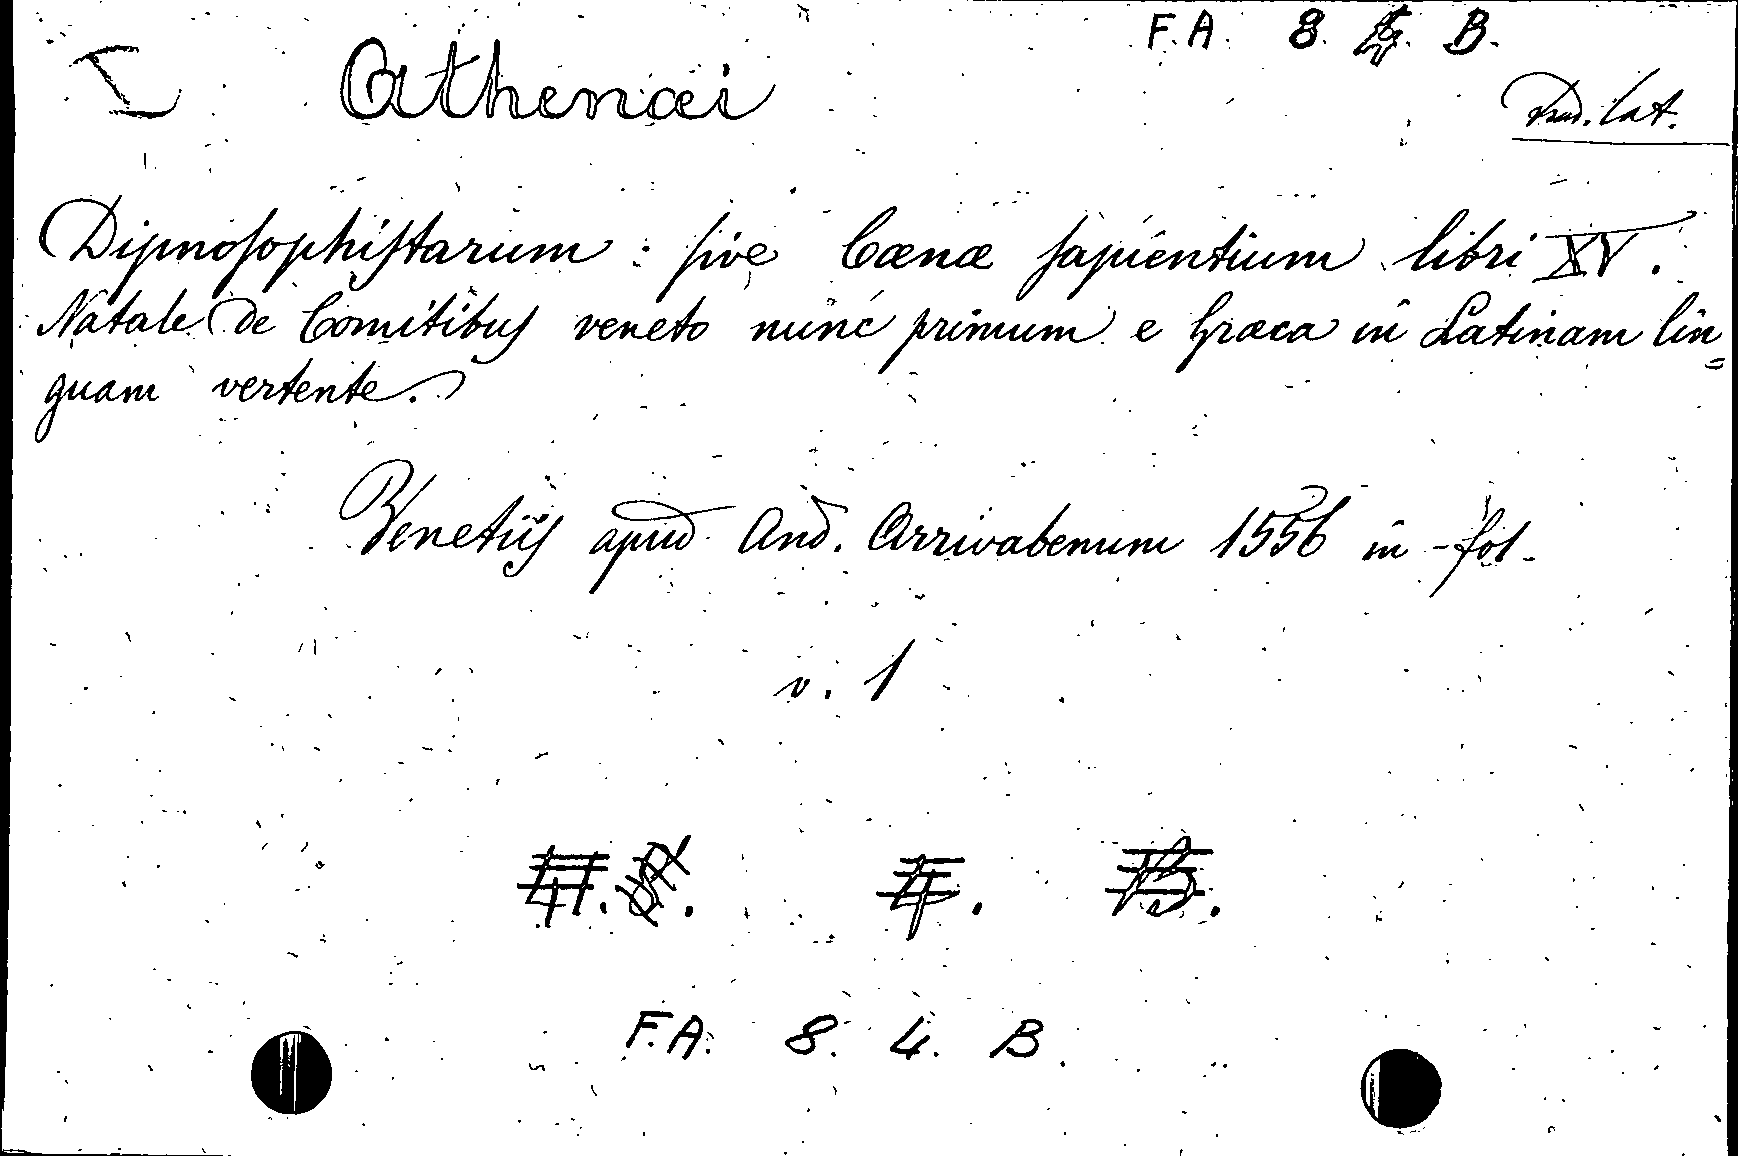 F.A. 8. 4. B.
I Athenæi
Trad. lat.
Dipnoſophiſtarum : ſive Cœnæ ſapientium libri XV.
Natale de Comitibuſ veneto nunc primum e Græca in Latinam lin=
guam vertente.
Venetiiſ apud And. Arrivabenum 1556 in-fol.
v. 1
F.A. 8. 4. B.